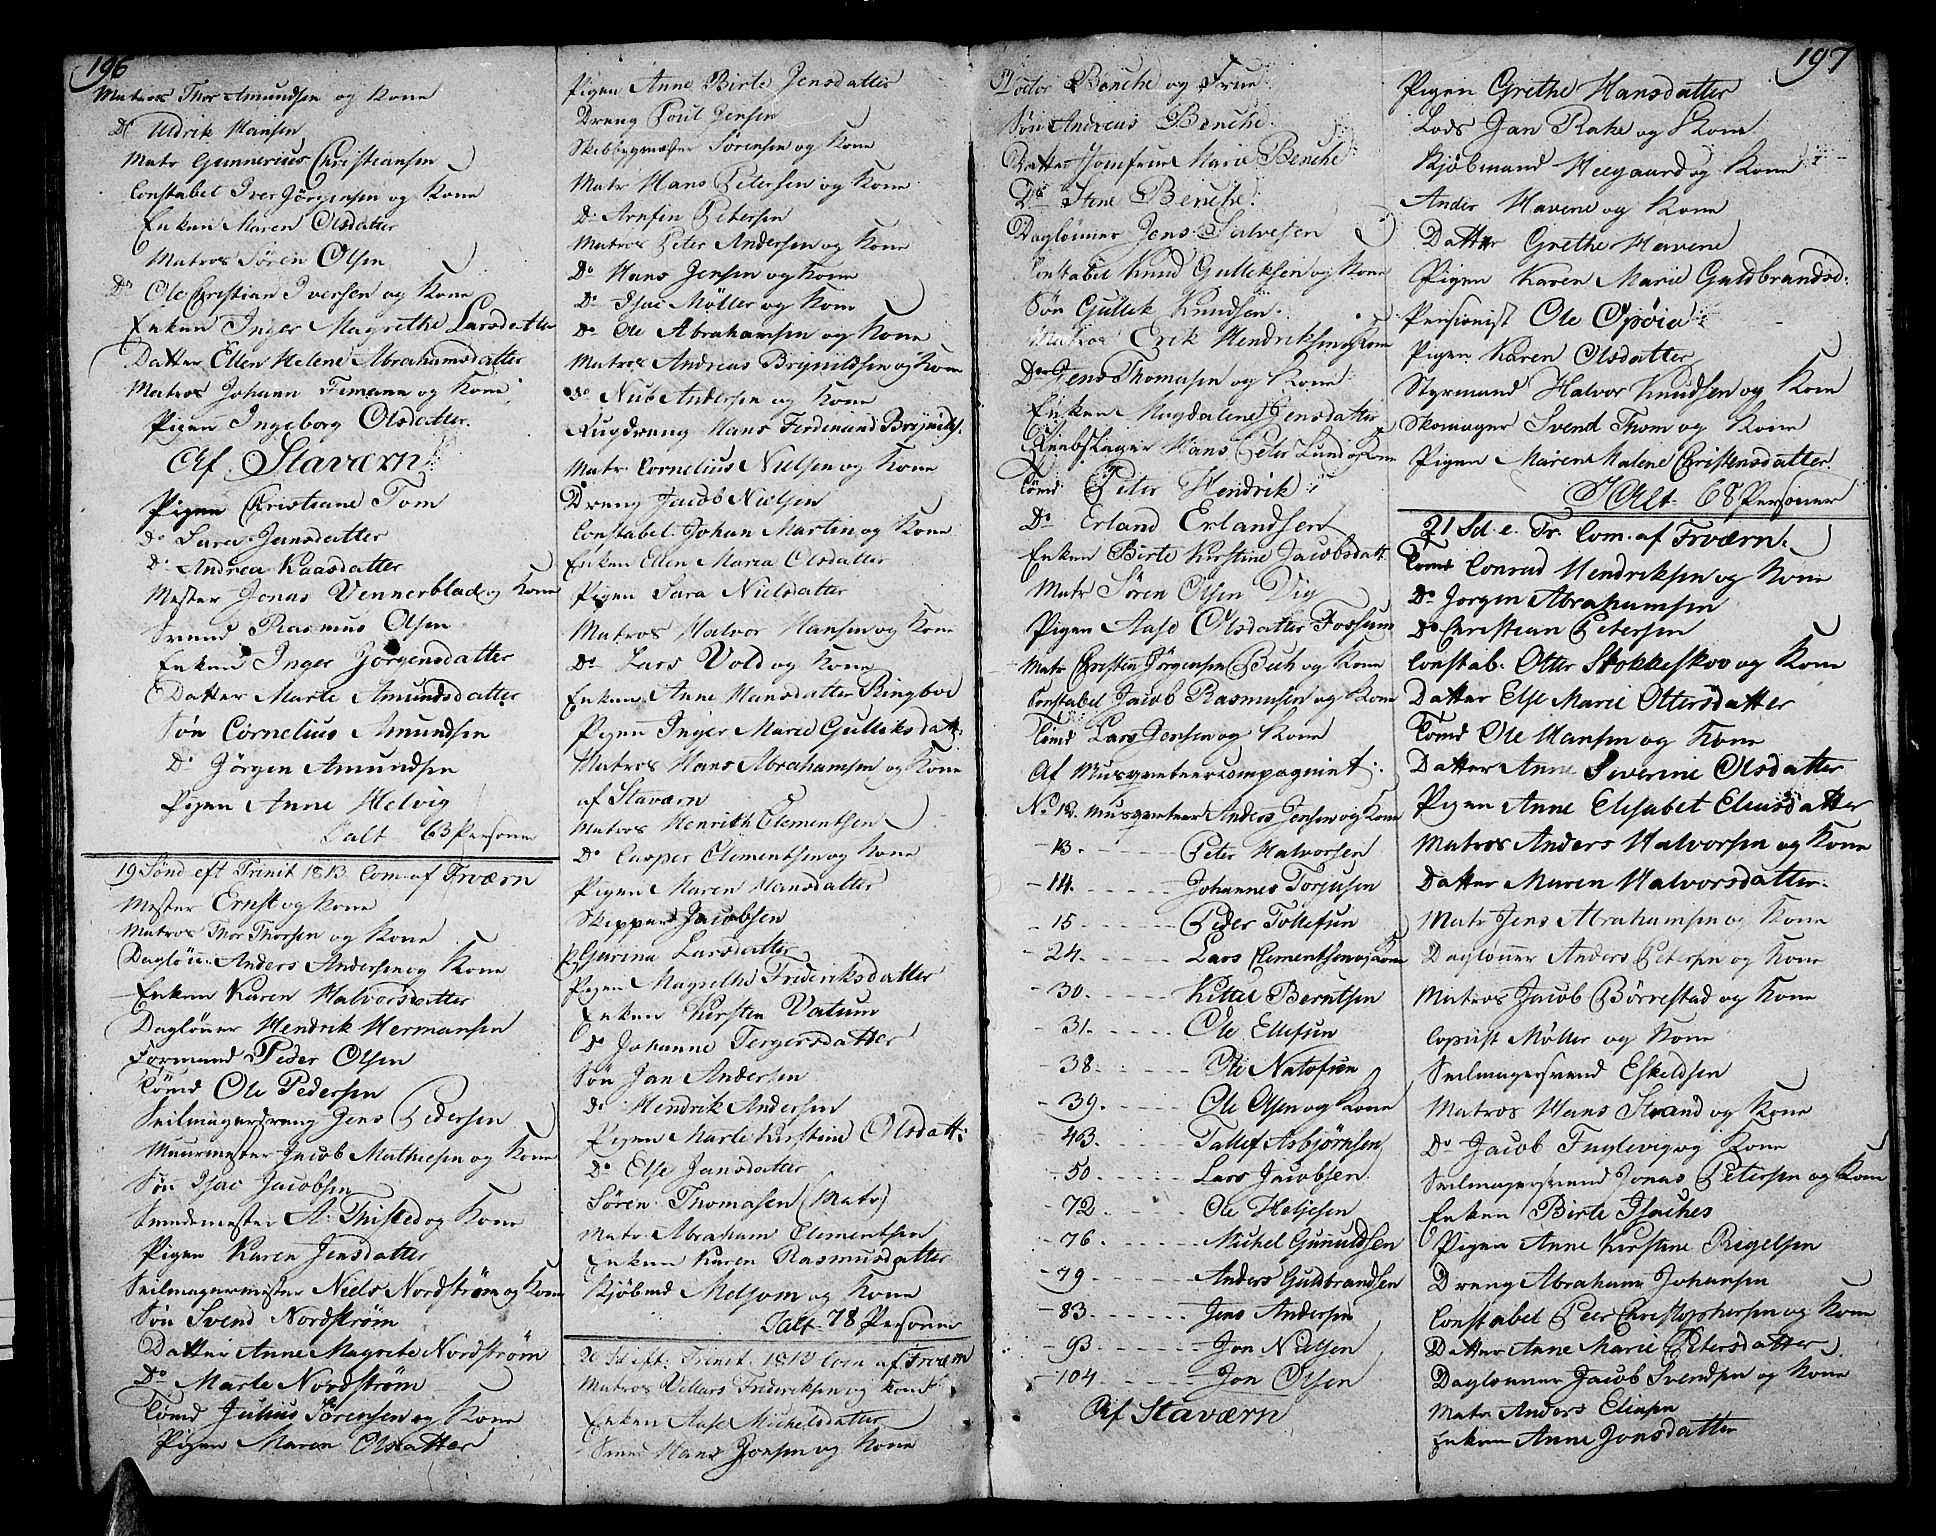 196
Matros Thor Amundsen og Kone
Do Uldrik Hansen
Matr Gunnerius Christiansen
Constabel Iver Jörgensen og Kone
Enken Maren Olsdatter
Matros Sören Olsen
Do Ole Christian Iversen og Kone
Enken Inger Magrethe Larsdatter
Datter Ellen Helene Abrahamsdatter
Matros Johann Temann og Kone
Pigen Ingeborg Olsdatter.
Af Staværn
Pigen Christiane Tom
do Lara Jansdatter
Do Andrea Kaasdatter
Mester Jonas Vennerblad og Kone
Svend Rasmus Olsen
Enken Inger Jörgensdatter
Datter Marte Amundsdatter
Sön Cornelius Amundsen
Do Jörgen Amundsen
Pigen Anne Helvig
Ialt 63 Personer
19 Sönd eft Trinit 1813. Com. af Frværn
Mester Ernst og Kone
Matros Thor Thorsen og Kone
Daglön: Anders Andersen og Kone
Enken Karen Halvorsdatter
Daglöner Hendrik Hermansen
Formand Peder Olsen
Tömd Ole Pedersen
Seilmagerdreng Jens Pedersen
Muurmester Jacob Mathiesen og Kone
Sön Isac Jacobsen
Smedemester A. Thisted og Kone
Pigen Karen Jensdatter
Seilmagermester Niels Nordström og Kone
Sön Svend Nordström
Datter Anne Magrete Nordström
Do Marte Nordström
Tömd Julius Sörensen og Kone
Pigen Maren Olsdatter
Pigen Anne Birte Jensdatter
Dreng Poul Jensen
Skibbygmester Sörensen og Kone
Matr Hans Petersen og Kone
Do Arnfin Petersen
Matros Peter Andersen og Kone
Do Hans Jensen og Kone
Do Isac Möller og Kone
Do Ole Abrahamsen og Kone
Matros Andreas Brynildsen og Kone
do Nub Andersen og Kone
Rugdreng Hans Ferdinand Brynilds.
Matr Cornelius Nielsen og Kone
Dreng Jacob Nielsen
Constabel Johan Martin og Kone
Enken Ellen Maria Olsdatter
Pigen Sara Nielsdatter
Matros Halvor Hansen og Kone
Do Lars Vold og Kone
Enken Anne Hansdatter Ringboe
Pigen Inger Marie Gulliksdatt:
Matros Hans Abrahamsen og Kone
af Staværn
Matros Henrik Clementsen
Do Casper Clementsen og Kone
Pigen Maren Hansdatter
Skipper Jacobsen
P Gurina Larsdatter
Pigen Magrethe Frideriksdatter
Enken Kirsten Vatum
Do Johanne Tergersdatter
Sön Jan Andersen
do Hendrik Andersen
Pigen Marte Kirstine Olsdatt:
Do Else Jansdatter
Sören Thomasen (Matr)
Matr. Abraham Clementsen
Enken Karen Rasmusdatter
Kjöbmd Melsom og Kone
Ialt 78 Personer
20 Sd eft: Trinit. 1813 Com af Frværn
Matros Vellars Frideriksen og Kone
Enken Aase Michelsdatter
Svend Hans Jonsen og Kone
197
Doctor Benche og Frue
Sön Andreas Benche.
Datter Jomfrue Marie Benche
Do Stine Benche.
Daglönner Jens Salvesen
Constabel Knud Gulleksen og Kone
Sön Gullek Knudsen.
Matros Erik Hendriksen og Kone
Do Jens Thomasen og Kone
Enken Magdalene Jensdatter
Reebslager Hans Peter Lund og Kone
Tömd Peter Hendrik
Do Erland Erlandsen
Enken Birte Kirstine Jacobsdatt.
Matr Sören Olsen Vig
Pigen Aase Olsdatter Fossum
Matr Christen Jörgensen Buch og Kone
Constabel Jacob Rasmusen og Kone
Tömd Lars Jensen og Kone
Af Musqueteercompagniet.
No 12. Musqueteer Anders Jensen og Kone
13. Peter Halvorsen
14. Johannes Torjusen
15 Peder Tollefsen
24. Lars Clementsen og Kone
30. Kittel Berntsen
31. Ole Ellefsen
38. Ole Natofsen
39. Ole Olsen og Kone
43. Tallef Asbjörnsen
50. Lars Jacobsen
72 Ole Heljesen
76 Michel Gunuldsen
79 Anders Guldbrandsen
83. Jens Andersen
93 Jon Nielsen
104 Jon Olsen
Af Staværn
Pigen Grethe Hansdatter
Lods Jan Rake og Kone
Kjöbmand Heegaard og Kone
Ander Havene og Kone
Datter Grethe Havene
Pigen Karen Marie Guldbrandsd:
Pensionist Ole Opöien
Pigen Karen Olsdatter
Styrmand Halvor Knudsen og Kone
Skomager Svend Thom og Kone
Pigen Maren Malene Christensdatter
I Alt 68 Personer
21 Sd e. Tr. Com. af Frværn.
Tömd Conrad Hendriksen og Kone
Do Jorgen Abrahamsen
Do Christian Petersen
Constab. Otter Stokkeskov og Kone
Datter Else Marie Ottersdatter
Tömd Ole Hansen og Kone
Datter Anne Severine Olsdatter
Pigen Anne Elisabet Eliasdatter
Matros Anders Halvorsen og Kone
Datter Maren Halvorsdatter.
Matr Jens Abrahamsen og Kone
Daglönner Anders Petersen og Kone
Matros Jacob Börrestad og Kone
Copiist Möller og Kone
Seilmagersvend Eskeldsen
Matros Hans Strand og Kone
Do Jacob Fuglevig og Kone
Seilmagersvend Jonas Petersen og Kone
Enken Birte Isaches
Pigen Anne Kirstine Rigelsen
Dreng Abraham Johansen
Constabel Peer Christophersen og Kone
Datter Anne Marie Petersdatter
Daglönner Jacob Svendsen og Kone
Matr. Anders Eliasen
Enken Anne Jonsdatter